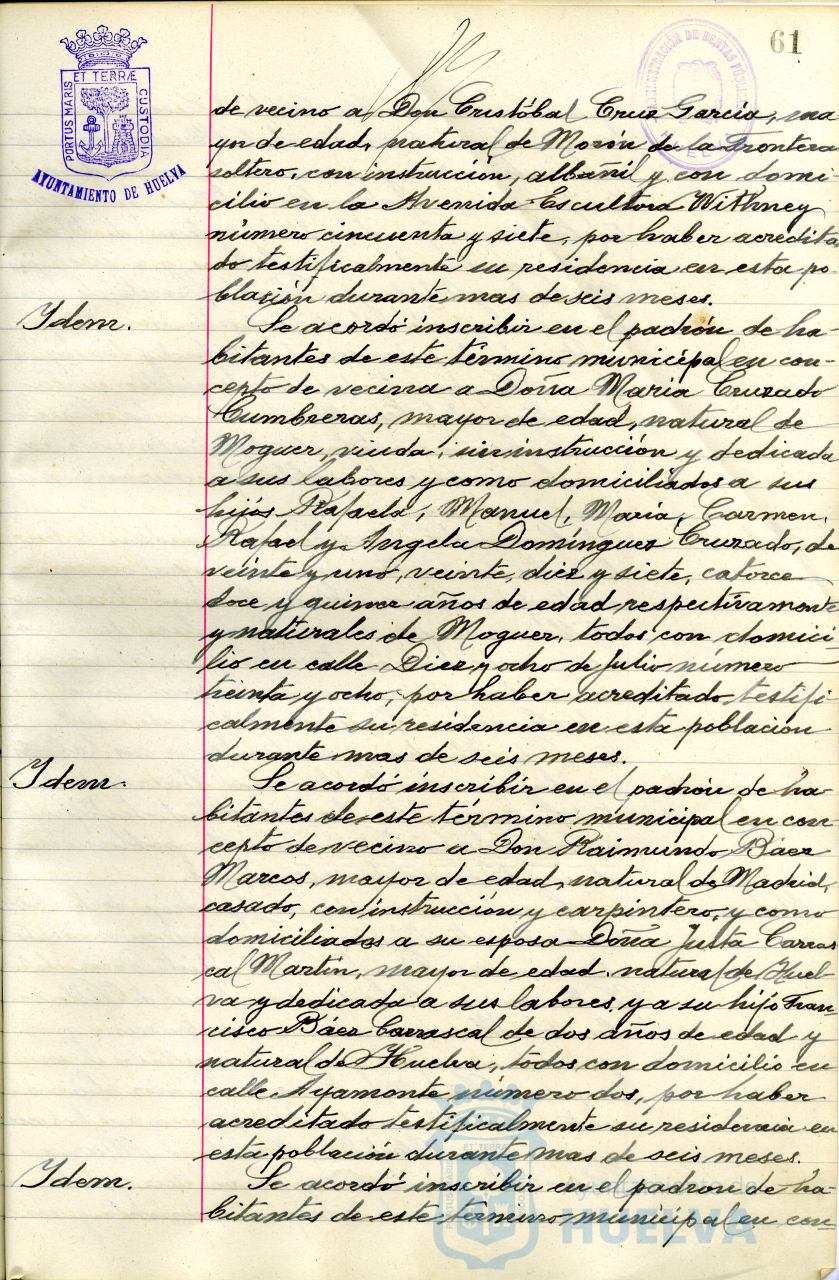 61
ET TERRÆ
PORTUS MARIS
CUSTODIA
AYUNTAMIENTO DE HUELVA
ADMINISTRACIÓN DE RENTAS PÚBLICAS
HUELVA
de vecino a Don Cristóbal Cruz García, ma
yor de edad, natural de Morón de la Frontera
soltero, con instrucción, albañil y con domi-
cilio en la Avenida Escultora Withney
número cincuenta y siete, por haber acredita
do testificalmente su residencia en esta po-
blación durante mas de seis meses.
Idem.
Se acordó inscribir en el padrón de ha-
bitantes de este término municipal en con-
cepto de vecina a Doña María Cruzado
Cumbreras, mayor de edad, natural de
Moguer, viuda, sin instrucción y dedicada
a sus labores y como domiciliados a sus
hijos Rafaela, Manuel, María, Carmen,
Rafael y Angela Domínguez Cruzado, de
veinte y uno, veinte, diez y siete, catorce
doce y quince años de edad respectivamente
y naturales de Moguer, todos con domici-
lio en calle Diez y ocho de Julio número
treinta y ocho, por haber acreditado testifi-
calmente su residencia en esta población
durante mas de seis meses.
Idem.
Se acordó inscribir en el padrón de ha-
bitantes de este término municipal en con-
cepto de vecino a Don Raimundo Báez
Marcos, mayor de edad, natural de Madrid,
casado, con instrucción y carpintero, y como
domiciliados a su esposa Doña Justa Carras
cal Martín, mayor de edad, natural de Huel-
va y dedicada a sus labores, y a su hijo Fran-
cisco Báez Carrascal de dos años de edad y
natural de Huelva, todos con domicilio en
calle Ayamonte número dos, por haber
acreditado testificalmente su residencia en
esta población durante mas de seis meses.
Idem.
Se acordó inscribir en el padron de ha-
bitantes de este término municipal en con-
Ayuntamiento de
HUELVA